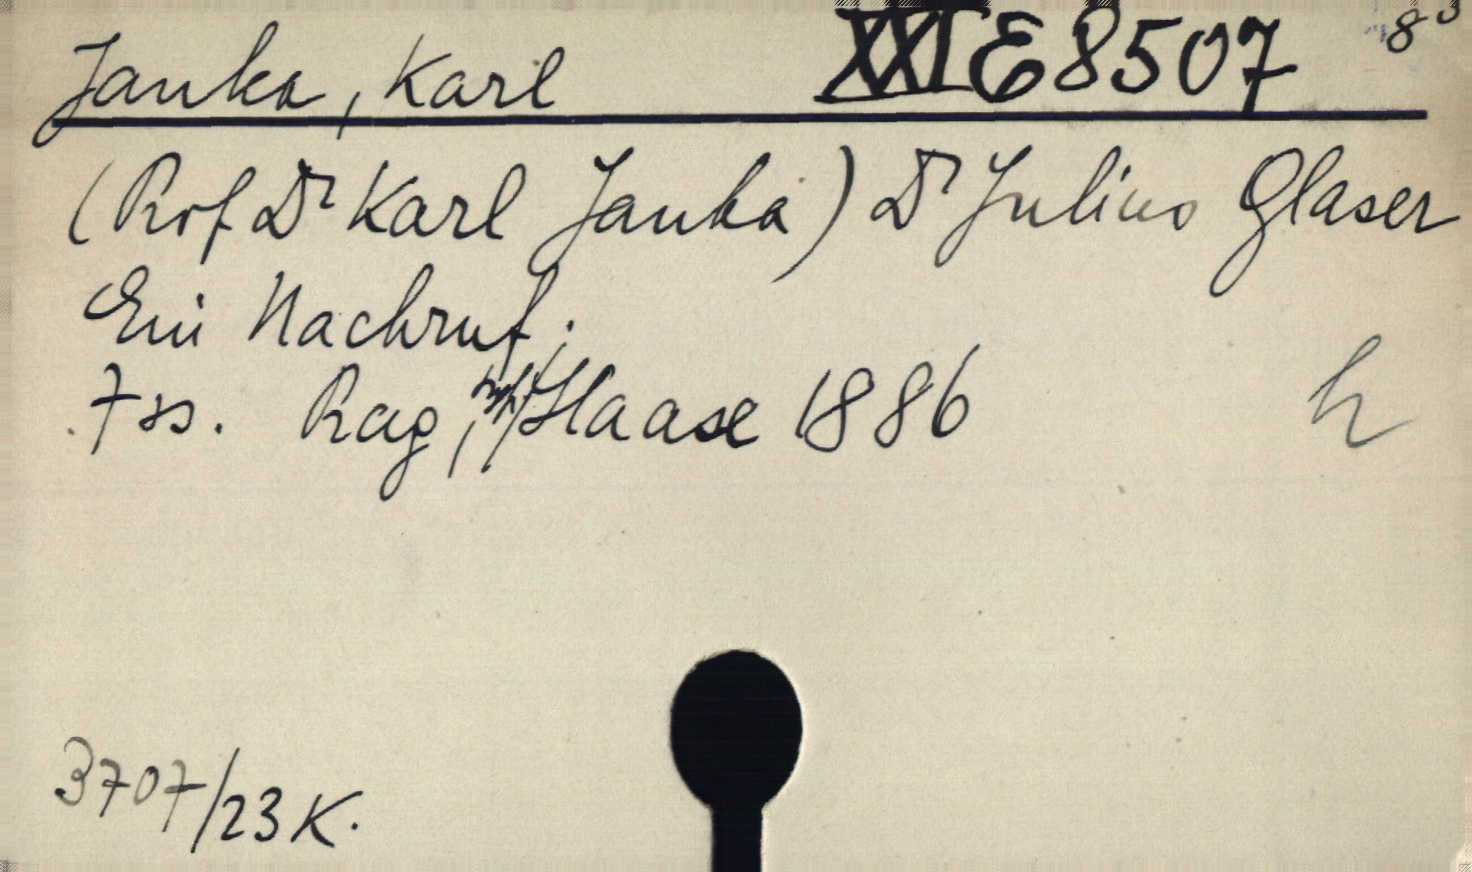 Janka, Karl XXI E 8507 8°
(Prof Dr Karl Janka) Dr Julius Glaser
Ein Nachruf.
7 ss. Prag, Haase 1886
h
3707/23 K.